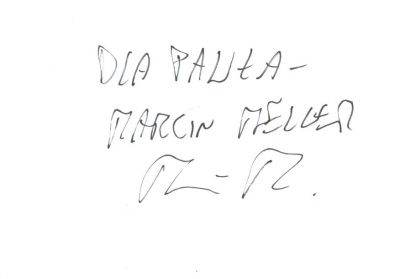 DLA PAWŁA –
MARCIN MELLER
M – M.